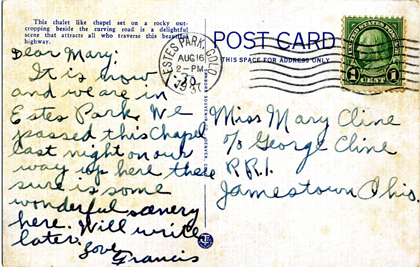 This chalet like chapel set on a rocky out-
cropping beside the curving road is a delightful
scene that attracts all who traverse this beautiful
highway.
Dear Mary:
It is now
and we are in
Estes Park. We
passed this Chapel
last night on our
way up here there
sure is some
wonderful scenery
here. Will write
later.
Love
Francis
POST CARD
THIS SPACE FOR ADDRESS ONLY
ESTES PARK, COLO.
AUG 16
2-PM
UNITED STATES POSTAGE
1 CENT 1
Miss Mary Cline
c/o George Cline
R.R.1.
Jamestown Ohio.